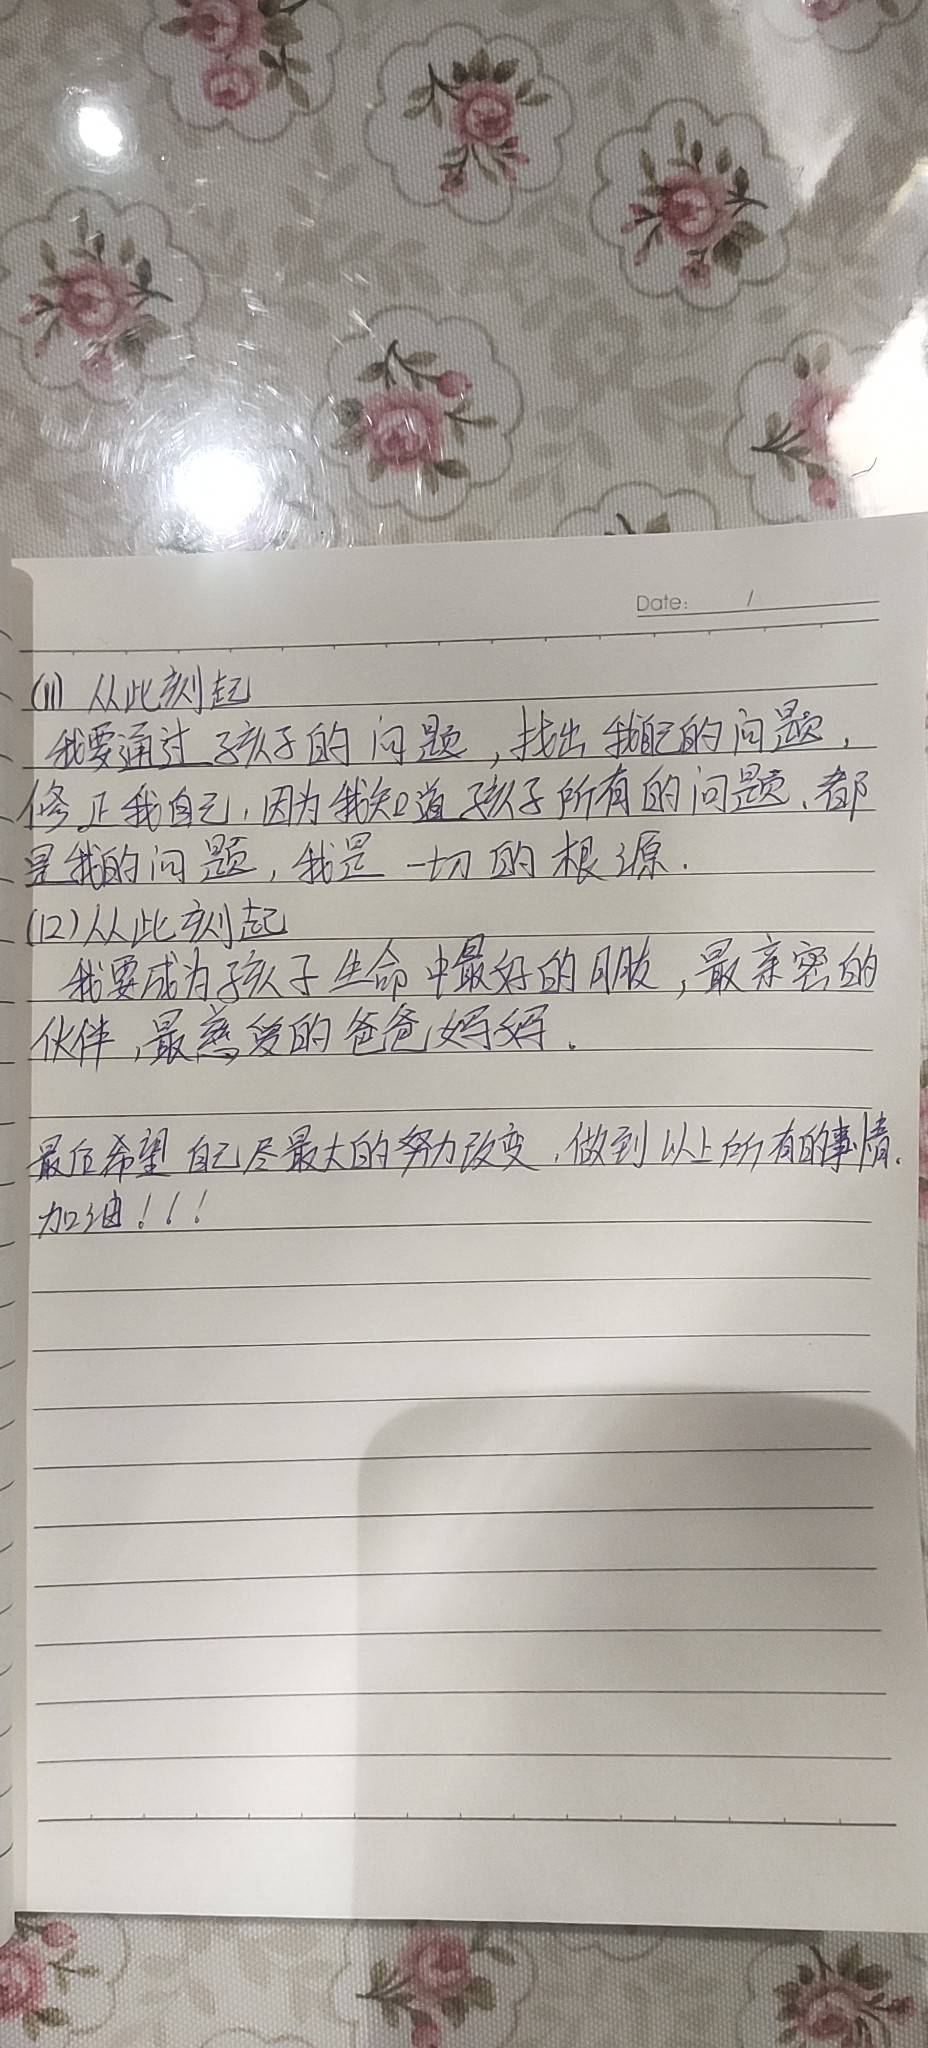 Date: /
(11) 从此刻起
我要通过孩子的问题，找出我自己的问题，
修正我自己，因为我知道孩子所有的问题、都
是我的问题，我是一切的根源.
(12) 从此刻起
我要成为孩子生命中最好的朋友，最亲密的
伙伴，最慈爱的爸爸妈妈.
最后希望自己尽最大的努力改变，做到以上所有的事情.
加油！！！